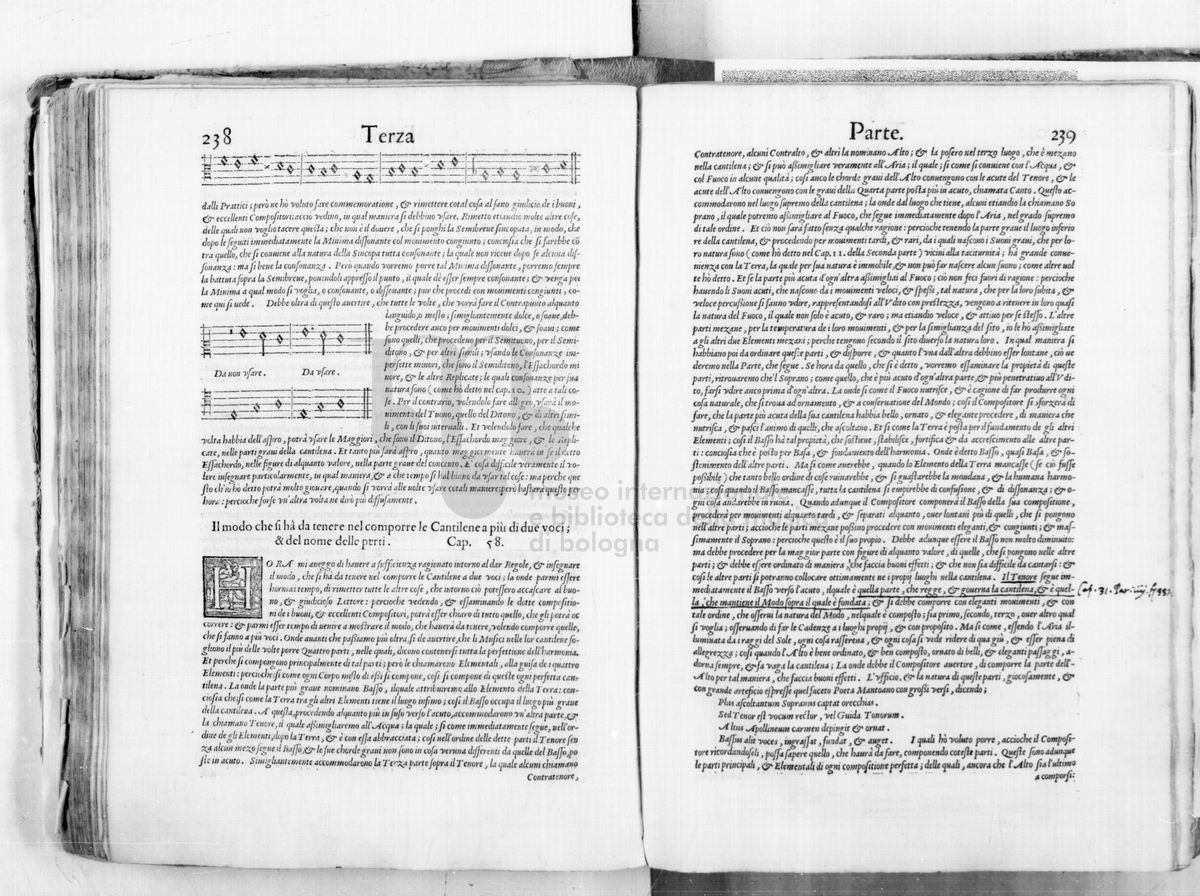 238
Terza
dalli Prattici; però ne hò voluto fare commemoratione, & rimettere cotal cosa al sano giudicio de i buoni,
& eccellenti Compositori; acciò vedino, in qual maniera si debbino vsare. Rimetto etiandio molte altre cose,
delle quali non voglio tacere questa; che non è il douere, che si ponghi la Semibreue sincopata, in modo, che
dopo le seguiti immediatamente la Minima dissonante col mouimento congiunto; conciosia che si farebbe cō
tra quello, che si conuiene alla natura della Sincopa tutta consonante; la quale non riceue dopo se alcuna dis-
sonanza: ma si bene la consonanza. Però quando vorremo porre tal Minima dissonante, porremo sempre
la battuta sopra la Semibreue, ponendoli appresso il punto, il quale dè esser sempre consonante; & venga poi
la Minima a qual modo si voglia, o consonante, o dissonante; pur che procedi con mouimenti congiunti, co-
me qui si uede. Debbe oltra di questo auertire, che tutte le volte, che vorrà fare il Contrapunto alquanto
languido, o mesto; simigliantemente dolce, o soaue, deb-
be procedere anco per mouimenti dolci, & soaui; come
sono quelli, che procedeno per il Semituono, per il Semi-
ditono, & per altri simili; vsando le Consonanze im-
perfette minori, che sono il Semiditono, l'Essachordo mi
nore, & le altre Replicate; le quali consonanze per sua
natura sono (come hò detto nel cap. 10.) atte a tali co-
se. Per il contrario, volendolo fare allegro, vsarà il mo-
uimento del Tuono, quello del Ditono, & di altri simi-
li, con li suoi interualli. Et volendolo fare, che qualche
Da non vsare. Da vsare.
volta habbia dell'aspro, potrà vsare le Maggiori, che sono il Ditono, l'Essachordo maggiore, & le Repli-
cate, nelle parti graui della cantilena. Et tanto più sarà aspro, quanto maggiormente hauerà in se il detto
Essachordo, nelle figure di alquanto valore, nella parte graue del concento. E' cosa difficile veramente il vo-
lere insegnare particolarmente, in qual maniera, & a che tempo si habbiano da vsar tal cose: ma perche que
sto ch'io hò detto potrà molto giouare, quando si vorrà alle volte vsare cotali maniere; però bastarà questo p
hora: percioche forse vn'altra volta ne dirò più diffusamente.
Il modo che si hà da tenere nel comporre le Cantilene a più di due voci;
& del nome delle perti. Cap. 58.
HORA mi aueggo di hauere a sufficienza ragionato intorno al dar Regole, & insegnare
il modo, che si hà da tenere nel comporre le Cantilene a due voci; la onde parmi essere
hormai tempo, di rimetter tutte le altre cose, che intorno ciò potessero accascar al buo-
no, & giudicioso Lettore: percioche vedendo, & essaminando le dotte compositio-
ni de i buoni, & eccellenti Compositori, potrà esser chiaro di tutto quello, che gli potrà oc
correre: & parmi esser tempo di uenire a mostrare il modo, che hauerà da tenere, volendo comporre quelle,
che si fanno a più voci. Onde auanti che passiamo più oltra, si dè auertire, che li Musici nelle lor cantilene so-
gliono il più delle volte porre Quattro parti, nelle quali, dicono contenersi tutta la perfettione dell'harmonia.
Et perche si compongono principalmente di tal parti; però le chiamarono Elementali, alla guisa de i quattro
Elementi: percioche si come ogni Corpo misto di essi si compone, cosi si compone di queste ogni perfetta can-
tilena. La onde la parte più graue nominano Basso, ilquale attribuiremo allo Elemento della Terra: con-
ciosia che si come la Terra tra gli altri Elementi tiene il luogo infimo; cosi il Basso occupa il luogo più graue
della cantilena. A questa, procedendo alquanto più in suso verso l'acuto, accommodarono vn'altra parte, &
la chiamano Tenore, il quale assimigliaremo all'Acqua; la quale; si come immediatamente segue, nell'or-
dine de gli Elementi, dopo la Terra, & è con essa abbracciata; cosi nell'ordine delle dette parti il Tenore sen
za alcun mezo segue il Basso, & le sue chorde graui non sono in cosa veruna differenti da quelle del Basso, po
ste in acuto. Simigliantemente accommodarono la Terza parte sopra il Tenore, la quale alcuni chiamano
Contratenore,
Parte.
239
Contratenore, alcuni Contralto, & altri la nominano Alto; & la posero nel terzo luogo, che è mezano
nella cantilena; & si può assimigliare veramente all'Aria; il quale; si come si conuiene con l'Acqua, &
col Fuoco in alcune qualità; cosi anco le chorde graui dell'Alto conuengono con le acute del Tenore, & le
acute dell'Alto conuengono con le graui della Quarta parte posta più in acuto, chiamata Canto. Questo ac-
commodarono nel luogo supremo della cantilena; la onde dal luogo che tiene, alcuni etiandio la chiamano So
prano, il quale potremo assimigliare al Fuoco, che segue immediatamente dopo l'Aria, nel grado supremo
di tale ordine. Et ciò non sarà fatto senza qualche ragione: percioche tenendo la parte graue il luogo inferio
re della cantilena, & procedendo per mouimenti tardi, & rari, da i quali nascono i Suoni graui, che per lo-
ro natura sono (come hò detto nel Cap. 11. della Seconda parte) vicini alla taciturnità; hà grande conue-
nienza con la Terra, la quale per sua natura è immobile, & non può far nascere alcun suono; come altre uol
te hò detto. Et se la parte più acuta s'assimigliati al Fuoco; ciò non feci fuori di ragione: percioche
hauendo li Suoni acuti, che nascono da i mouimenti veloci, & spessi, tal natura, che per la loro subita, &
veloce percussione si fanno vdire, rappresentandosi all'Vdito con prestezza, vengono a ritenere in loro quasi
la natura del Fuoco, il quale non solo è acuto, & raro; ma etiandio veloce, & attiuo per se stesso. L'altre
parti mezane, per la temperatura de i loro mouimenti, & per la simiglianza del sito, io le hò assimigliate
a gli altri due Elementi mezani; perche tengono secondo il sito diuerso la natura loro. In qual maniera si
habbiano poi da ordinare queste parti, & disporre, & quanto l'vna dall'altra debbino esser lontane, ciò ue
deremo nella Parte, che segue. Se hora da quello, che si è detto, vorremo essaminare la propietà di queste
parti, ritrouaremo che'l Soprano; come quello, che è più acuto d'ogn'altra parte, & più penetratiuo all'V di-
to, farsi vdire anco prima d'ogn'altra. La onde si come il Fuoco nutrisce, & è cagione di far produrre ogni
cosa naturale, che si troua ad ornamento, & a conseruatione del Mondo; cosi il Compositore si sforzerà di
fare, che la parte più acuta della sua cantilena habbia bello, ornato, & elegante procedere, di maniera che
nutrisca, & pasci l'animo di quelli, che ascoltano. Et si come la Terra è posta per il fundamento de gli altri
Elementi; cosi il Basso hà tal propietà, che sostiene, stabilisce, fortifica & da accrescimento alle altre par-
ti: conciosia che è posto per Basa, & fondamento dell'harmonia. Onde è detto Basso, quasi Basa, & so-
stenimento dell'altre parti. Ma si come auerebbe, quando lo Elemento della Terra mancasse (se ciò fusse
possibile) che tanto bello ordine di cose ruinarebbe, & si guastarebbe la mondana, & la humana harmo-
nia; cosi quando il Basso mancasse, tutta la cantilena si empirebbe di confusione, & di dissonanza; & o-
gni cosa andarebbe in ruina. Quando adunque il Compositore componerà il Basso della sua compositione,
procederà per mouimenti alquanto tardi, & separati alquanto, ouer lontani più di quelli, che si pongono
nell'altre parti; accioche le parti mezane possino procedere con mouimenti eleganti, & congiunti; & mas-
simamente il Soprano; percioche questo è il suo propio. Debbe adunque essere il Basso non molto diminuto:
ma debbe procedere per la maggior parte con figure di alquanto valore, di quelle, che si pongono nelle altre
parti; & debbe essere ordinato di maniera, che faccia buoni effetti; & che non sia difficile da cantarsi: &
cosi le altre parti si potranno collocare ottimamente ne i propij luoghi nella cantilena. Il Tenore segue im-
mediatamente il Basso verso l'acuto, ilquale è quella parte, che regge, & gouerna la cantilena, & è quel-
la, che mantiene il Modo sopra il quale è fondata; & si debbe comporre con eleganti mouimenti, & con
tale ordine, che osserui la natura del Modo, nelquale è composto; sia primo, secondo, terzo, ouer altro qual
si voglia; osseruando di far le Cadenze a i luoghi propij, & con proposito. Ma si come, essendo l'Aria il-
luminata da i raggi del Sole, ogni cosa rasserena, & ogni cosa si vede ridere di qua giù, & esser piena di
allegrezza; cosi quando l'Alto è bene ordinato, & ben composto, ornato di belli, & eleganti passaggi, a-
dorna sempre, & fa vaga la cantilena; La onde debbe il Compositore auertire, di comporre la parte dell'-
Alto per tal maniera, che faccia buoni effetti. L'vfficio, & la natura di queste parti, giocosamente, &
con grande arteficio espresse quel faceto Poeta Mantoano con grossi versi, dicendo;
Plus ascoltantum Sopranus captat orecchias.
Sed Tenor est vocum rector, vel Guida Tonorum.
Altus Apollineum carmen depingit & ornat.
Bassus alit voces, ingrassat, fundat, & auget. I quali hò voluto porre, accioche il Composi-
tore ricordandoseli, possa sapere quello, che haurà da fare, componendo coteste parti. Queste sono adunque
le parti principali, & Elementali di ogni compositione perfetta; delle quali, ancora che l'Alto sia l'ultimo
a comporsi:
Cap. 31. Par. iiij.
museo internazionale
e biblioteca della musica
di bologna